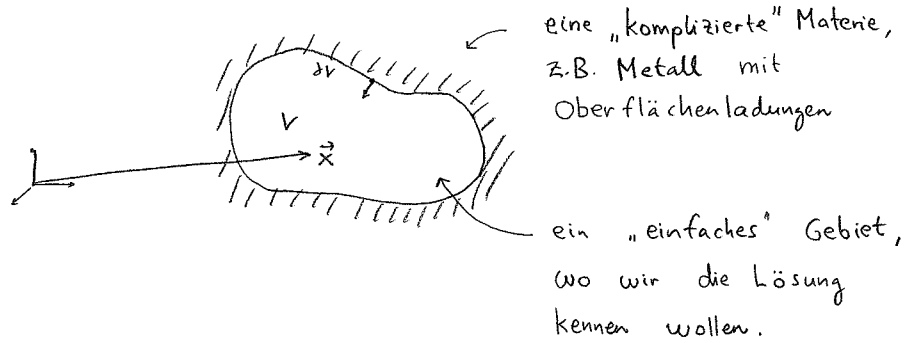 eine „komplizierte" Materie,
z.B. Metall mit
Oberflächenladungen
∂V
V
x⃗
ein „einfaches" Gebiet,
wo wir die Lösung
kennen wollen.